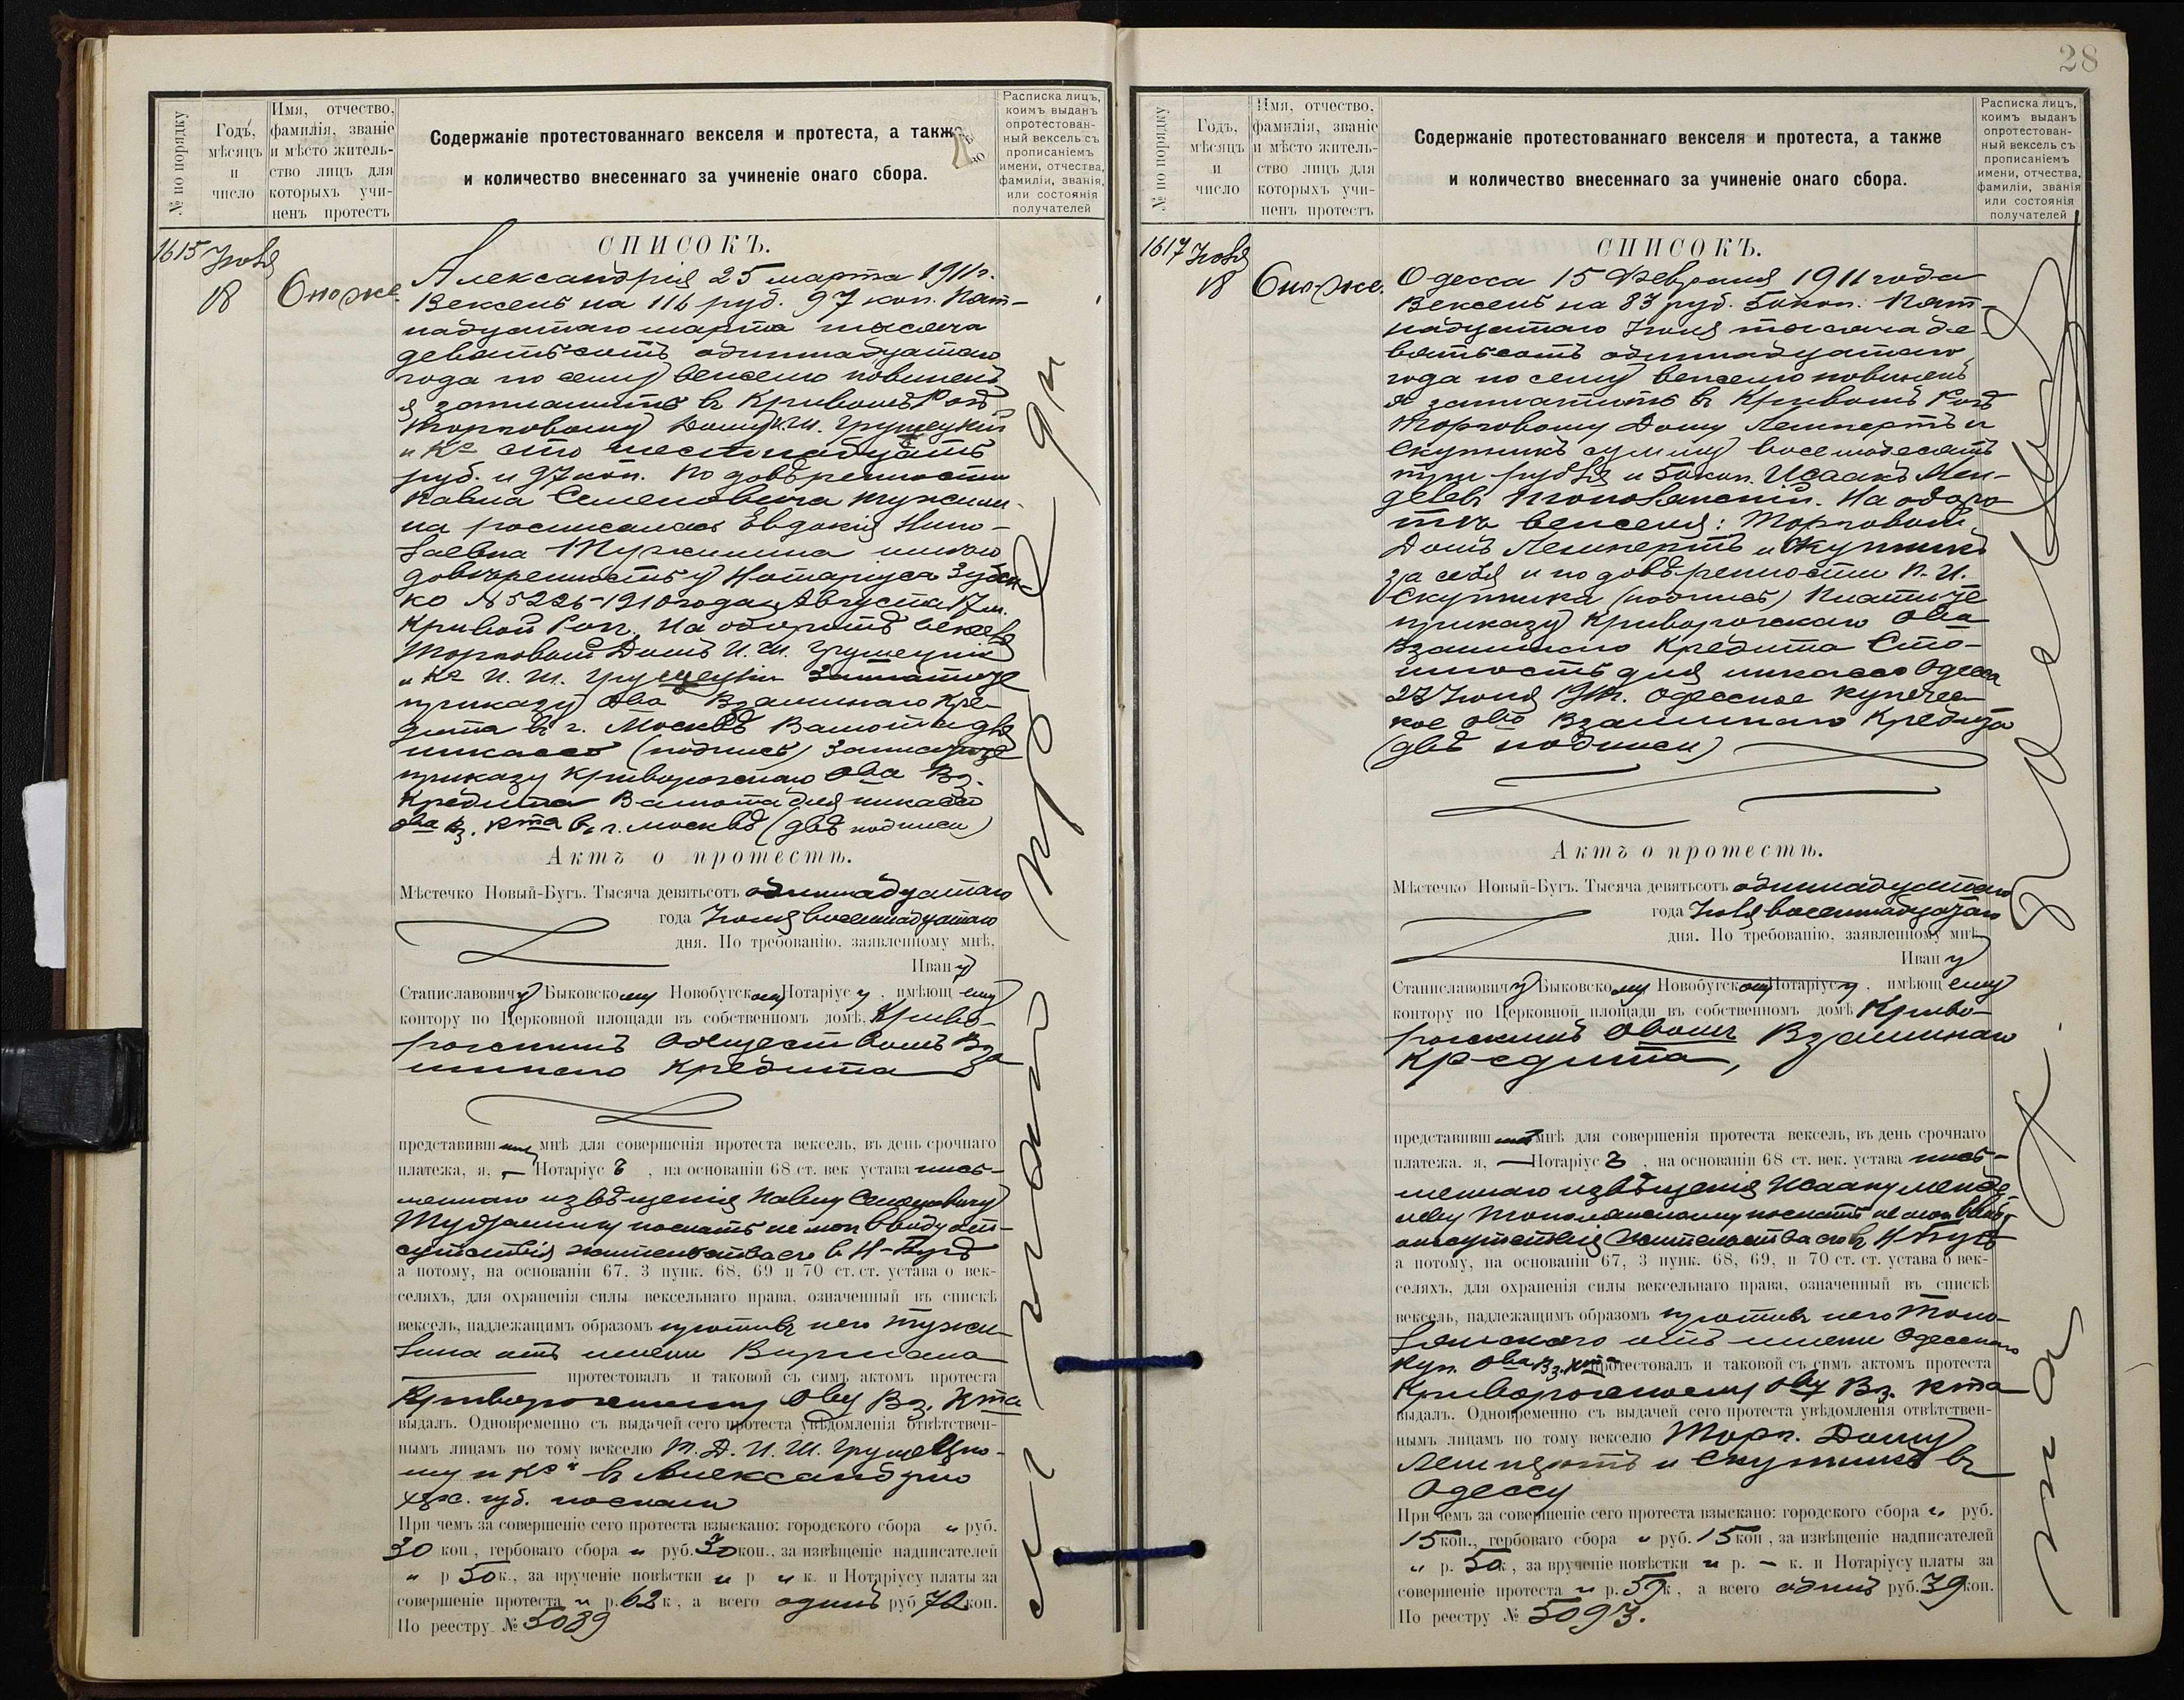 № по порядку
Годъ, мѣсяцъ и число
Имя, отчество, фамилія, званіе и мѣсто жительство лицъ для которыхъ учиненъ протестъ
Содержаніе протестованнаго векселя и протеста, а также
и количество внесеннаго за учиненіе онаго сбора.
Расписка лицъ, коимъ выданъ опротестованный вексель съ прописаніемъ имени, отчества, фамиліи, званія, или состоянія получателей
1615 Іюля
18
Оно же.
СПИСОКЪ.
Александрія 25 марта 1911г.
Вексель на 116 руб. 97 коп. Пят-
надцатаго марта тысяча
девятьсотъ одиннадцатаго
года по сему векселю повиненъ
я заплатить въ Кривомъ Рогѣ
Торговому Дому И. Ш. Грушецкій
и Кº сто шестнадцать
руб. и 97 коп. По довѣренности
Павла Семеновича
на росписалась Евдокія Нико-
лаевна
довѣренность у Нотаріуса
ко № 5226 - 1910 года Августа 17 дн.
Кривой Рогъ. На оборотѣ векселя
Торговый Домъ И. Ш. Грушецкій
и Кº И. Ш. Грушецкій Заплатите
приказу Ова Взаимнаго Кре-
дита въ г. Москвѣ Валюта для
инкассо (подпись) Заплатите
приказу Криворожскаго Ова Вз.
Кредита Валюта для инкассо
Ова Вз. Кта въ г. Москвѣ (двѣ подписи)
Актъ о протестѣ.
Мѣстечко Новый-Бугъ. Тысяча девятьсотъ одиннадцатаго
года Іюля восемнадцатаго
дня. По требованію, заявленному мнѣ,
Ивану
Станиславовичу Быковскому Новобугскому Нотаріусу, имѣющему
контору по Церковной площади въ собственномъ домѣ, Криво-
рожскимъ Обществомъ Вза
имнаго Кредита
представившимъ мнѣ для совершенія протеста вексель, въ день срочнаго
платежа, я, — Нотаріусъ, на основаніи 68 ст. век устава пись-
меннаго извѣщенія Павлу Семеновичу
послать не могъ ввиду от-
сутствія жительства его въ Н-Бугѣ
а потому, на основаніи 67, 3 пунк. 68, 69 и 70 ст. ст. устава о век-
селяхъ, для охраненія силы вексельнаго права, означенный въ спискѣ
вексель, надлежащимъ образомъ противъ него
отъ имени
протестовалъ и таковой съ симъ актомъ протеста
Криворожскому Ову Вз. Кта
выдалъ. Одновременно съ выдачей сего протеста увѣдомленія отвѣтствен-
нымъ лицамъ по тому векселю Т. Д. И. Ш. Грушецко-
му и Кº въ Александрію
Хер. губ. послалъ
При чемъ за совершеніе сего протеста взыскано: городского сбора „ руб.
30 коп., гербоваго сбора „ руб. 30 коп., за извѣщеніе надписателей
„ р 50 к., за врученіе повѣстки „ р „ к. и Нотаріусу платы за
совершеніе протеста „ р. 62 к., а всего одинъ руб 72 коп.
По реестру № 5089
28
№ по порядку
Годъ, мѣсяцъ и число
Имя, отчество, фамилія, званіе и мѣсто жительство лицъ для которыхъ учиненъ протестъ
Содержаніе протестованнаго векселя и протеста, а также
и количество внесеннаго за учиненіе онаго сбора.
Расписка лицъ, коимъ выданъ опротестованный вексель съ прописаніемъ имени, отчества, фамиліи, званія или состоянія получателей
1617 Іюля
18
Оно-же.
СПИСОКЪ.
Одесса 15 Февраля 1911 года
Вексель на 83 руб. 50 коп. Пят-
надцатаго Іюля тысяча де-
вятьсотъ одиннадцатаго
года по сему векселю повиненъ
я заплатить въ Кривомъ Рогѣ
Торговому Дому Лемпертъ и
Скутникъ сумму восемьдесятъ
три рубля и 50 коп. Исаакъ Мен-
делевъ Тополянскій. На оборо-
тѣ векселя: Торговый
Домъ Лемпертъ и Скутникъ
за себя и по довѣренности П. И.
Скутника (подпись) Платите
приказу Криворожскаго Ова
Взаимнаго Кредита Сто-
имость для инкассо Одесса
22 Іюня 1911г. Одесское купечес-
кое Ово Взаимнаго Кредита
(двѣ подписи)
Актъ о протестѣ.
Мѣстечко Новый-Бугъ. Тысяча девятьсотъ одиннадцатаго
года Іюля восемнадцатаго
дня. По требованію, заявленному мнѣ
Ивану
Станиславовичу Быковскому Новобугскому Нотаріусу, имѣющему
контору по Церковной площади въ собственномъ домѣ Криво-
рожскимъ Овомъ Взаимнаго
Кредита,
представившимъ мнѣ для совершенія протеста вексель, въ день срочнаго
платежа. я, — Нотаріусъ, на основаніи 68 ст. век. устава пись-
меннаго извѣщенія Исааку Менде
леву Тополянскому послать не могъ ввиду
отсутствія жительства его въ Н Бугѣ
а потому, на основаніи 67, 3 пунк. 68, 69, и 70 ст. ст. устава о век-
селяхъ, для охраненія силы вексельнаго права, означенный въ спискѣ
вексель, надлежащимъ образомъ противъ него Топо-
лянскаго отъ имени Одесскаго
Куп. Ова Вз. Кта протестовалъ и таковой съ симъ актомъ протеста
Криворожскому Ову Вз. Кта
выдалъ. Одновременно съ выдачей сего протеста увѣдомленія отвѣтствен-
нымъ лицамъ по тому векселю Торг. Дому
Лемпертъ и Скутникъ въ
Одессу
При чемъ за совершеніе сего протеста взыскано: городского сбора „ руб.
15 коп., гербоваго сбора „ руб. 15 коп, за извѣщеніе надписателей
„ р. 50 к, за врученіе повѣстки „ р. – к. и Нотаріусу платы за
совершеніе протеста „ р. 59 к, а всего одинъ руб. 39 коп.
По реестру № 5093.